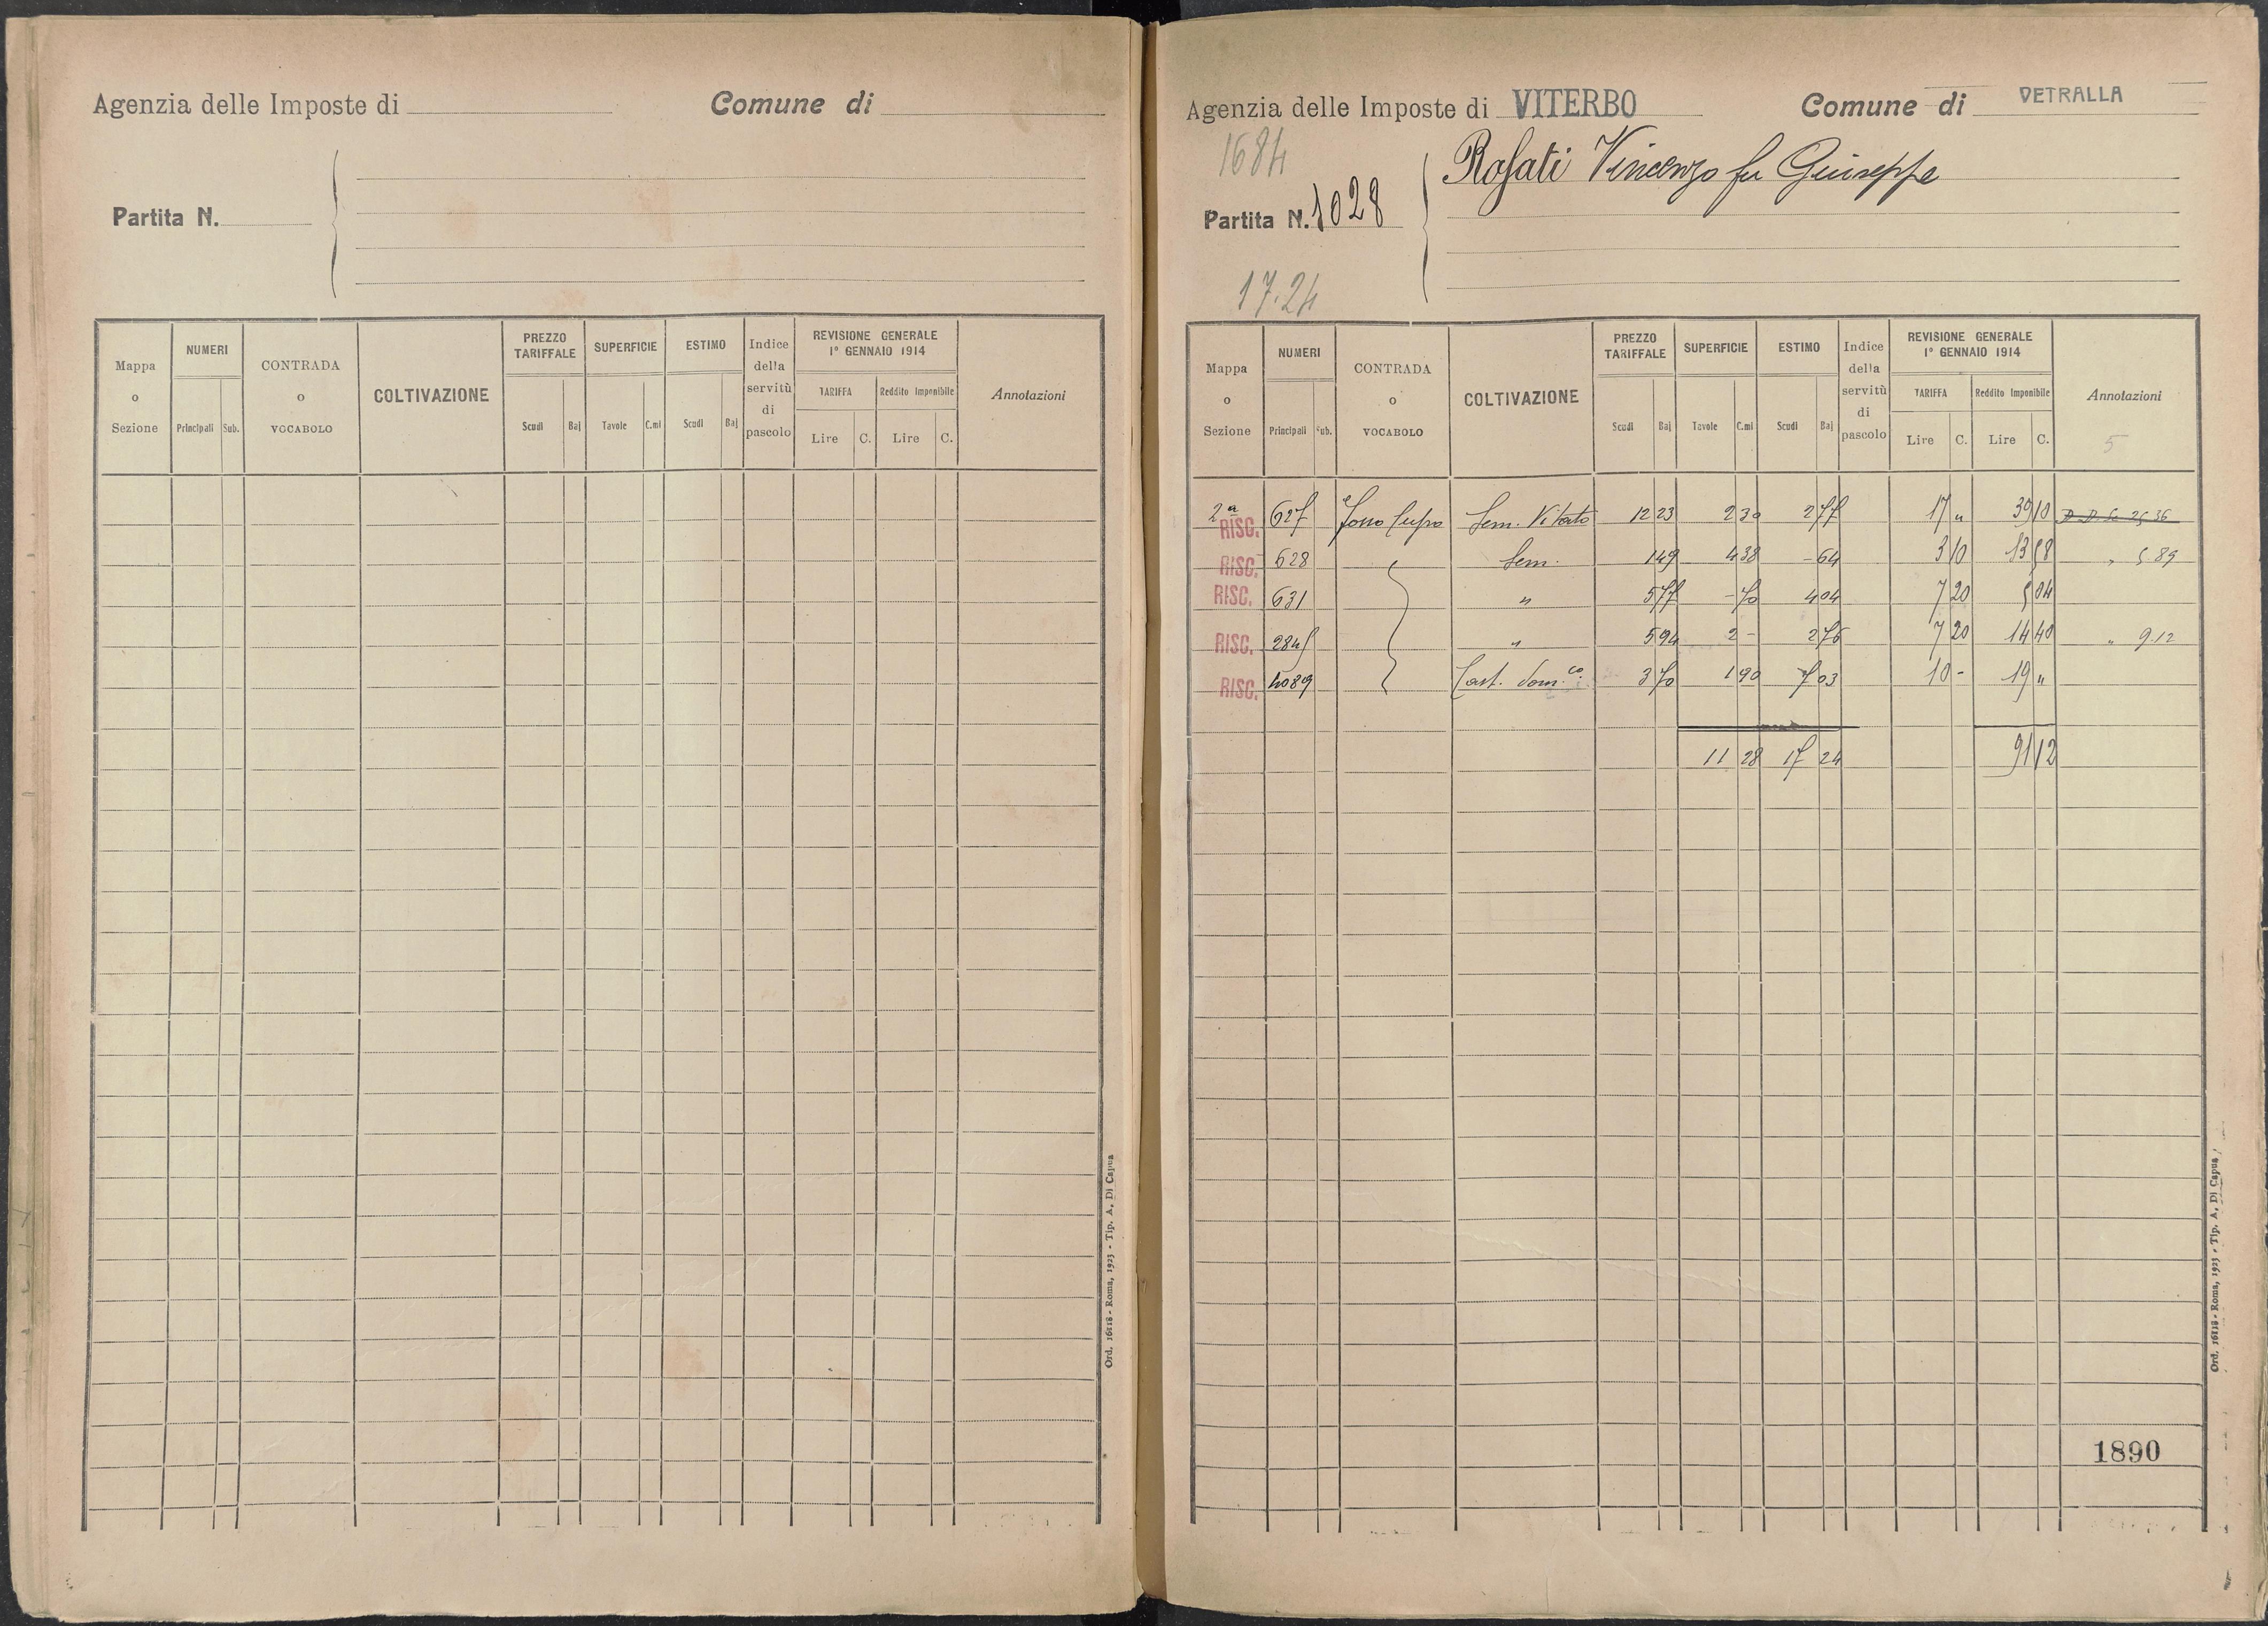 Agenzia delle Imposte di
Comune di
Partita N.
Mappa o Sezione
NUMERI
Principali Sub.
CONTRADA o VOCABOLO
COLTIVAZIONE
PREZZO TARIFFALE
Scudi Baj
SUPERFICIE
Tavole C.mi
ESTIMO
Scudi Baj
Indice della servitù di pascolo
REVISIONE GENERALE
1° GENNAIO 1914
TARIFFA
Lire C.
Reddito Imponibile
Lire C.
Annotazioni
Ord. 16118 - Roma, 1923 - Tip. A. Di Capua
Agenzia delle Imposte di VITERBO
Comune di VETRALLA
1684
Rosati Vincenzo fu Giuseppe
Partita N. 1028
17.24
Mappa o Sezione
NUMERI
Principali Sub.
CONTRADA o VOCABOLO
COLTIVAZIONE
PREZZO TARIFFALE
Scudi Baj
SUPERFICIE
Tavole C.mi
ESTIMO
Scudi Baj
Indice della servitù di pascolo
REVISIONE GENERALE
1° GENNAIO 1914
TARIFFA
Lire C.
Reddito Imponibile
Lire C.
Annotazioni
5
2a RISC. 627 Fosso Cupo Sem. Vitato 12 23 2 30 2 77 17 „ 39 10
RISC. 628 Sem. 1 49 4 38 - 64 3 10 13 58 „ 5.89
RISC. 631 „ 5 77 - 70 4 04 7 20 5 04
RISC. 2845 „ 5 94 2 - 2 76 7 20 14 40 „ 9.12
RISC. 4089 Cast. dom.co 3 70 1 90 7 03 10 - 19 „
11 28 17 24 91 12
1890
Ord. 16118 - Roma, 1923 - Tip. A. Di Capua